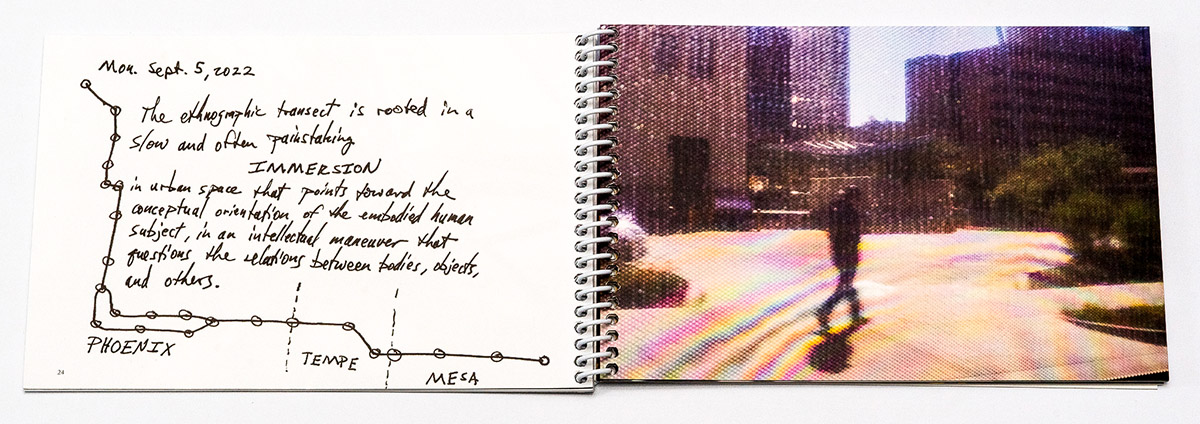 Mon. Sept. 5, 2022
The ethnographic transect is rooted in a
slow and often painstaking
IMMERSION
in urban space that points toward the
conceptual orientation of the embodied human
subject, in an intellectual maneuver that
questions the relations between bodies, objects,
and others.
PHOENIX
TEMPE
MESA
24